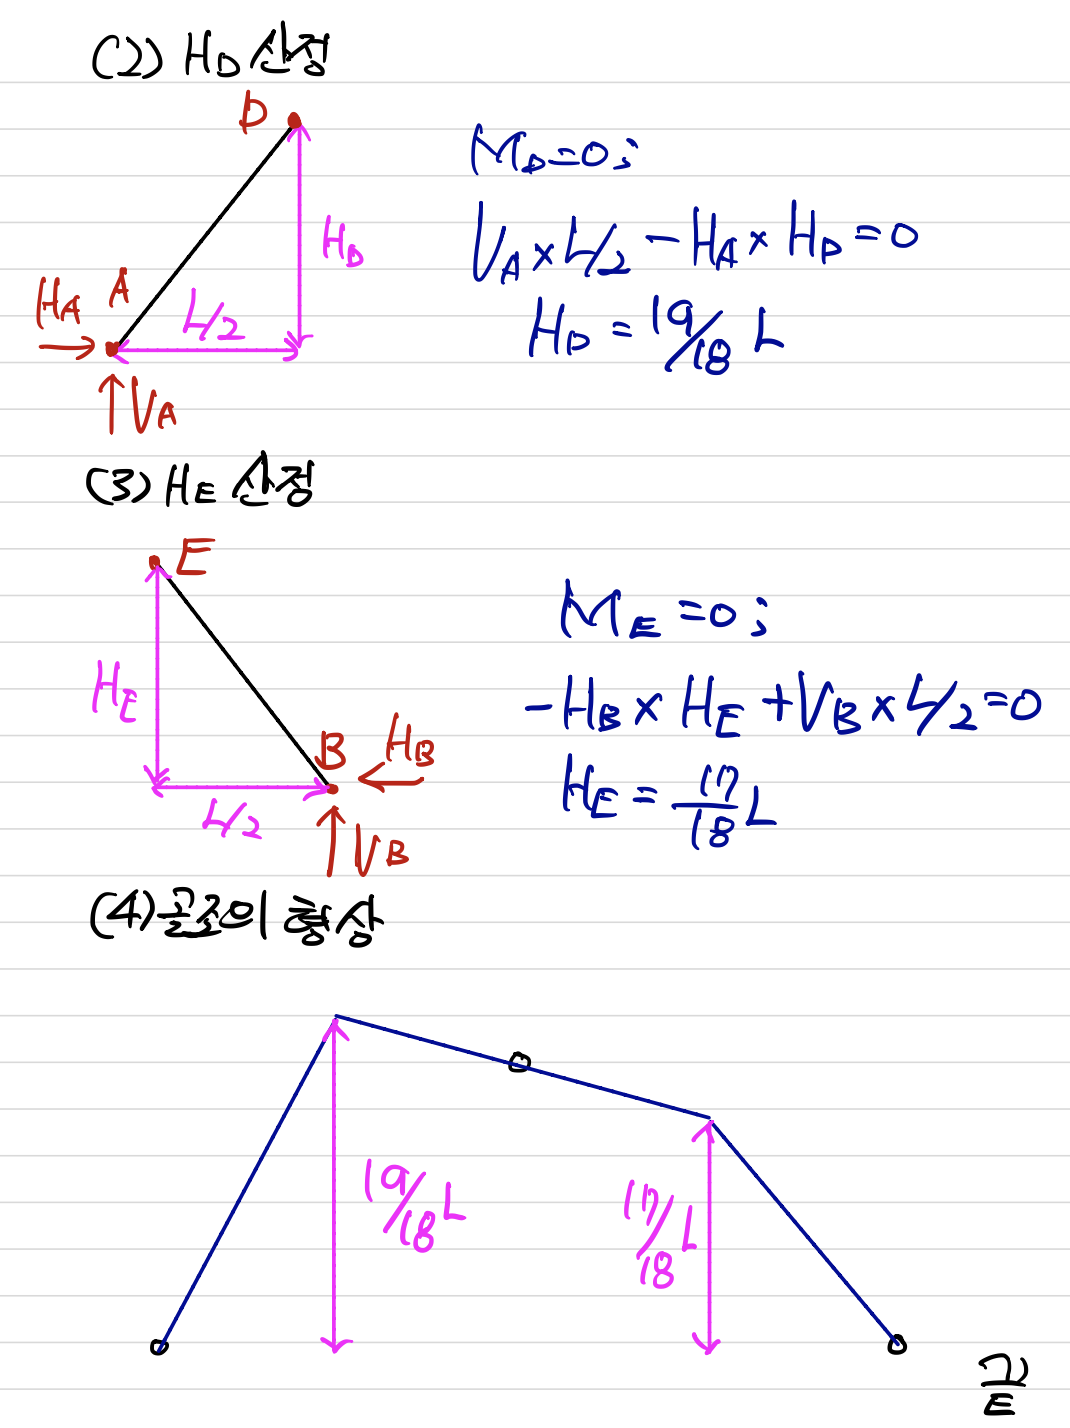 (2) H_D 산정
D
M_D=0;
V_A×L/2 - H_A×H_D=0
H_D
H_A A
L/2
H_D = 19/18 L
V_A
(3) H_E 산정
E
M_E=0;
H_E
-H_B×H_E+V_B×L/2=0
B H_B
H_E = 17/18 L
L/2
V_B
(4) 골조의 형상
19/18 L
17/18 L
끝